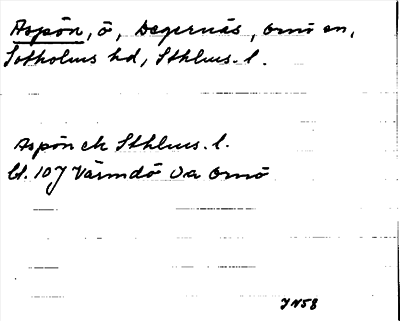 Aspön, ö, Degernäs, Ornö sn,
Sotholms hd, Sthlms. l.
Aspön ek Sthlms. l.
bl. 107 Värmdö Va Ornö
JN58